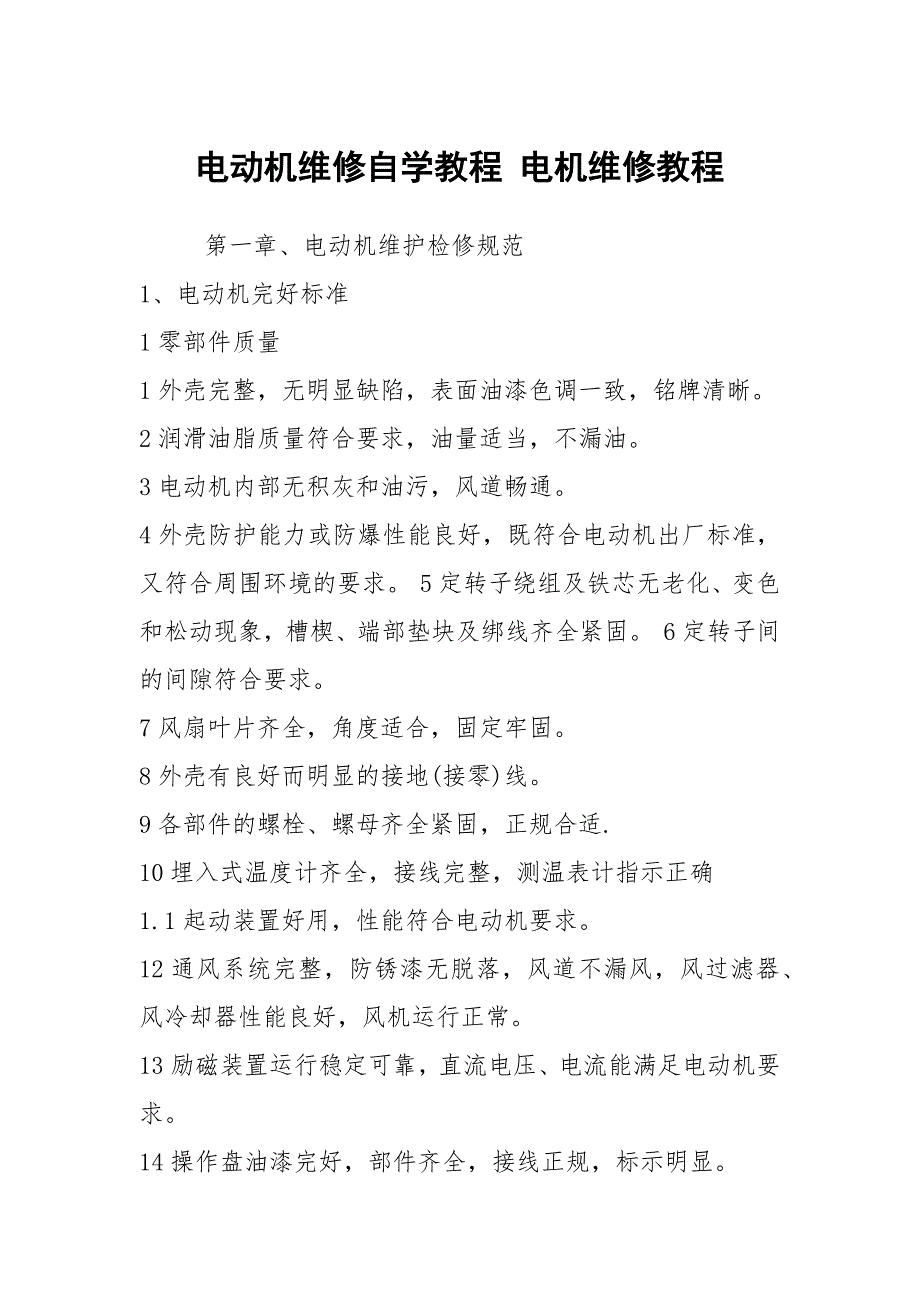 电动机维修自学教程 电机维修教程
第一章、电动机维护检修规范
1、电动机完好标准
1 零部件质量
1 外壳完整，无明显缺陷，表面油漆色调一致，铭牌清晰。
2 润滑油脂质量符合要求，油量适当，不漏油。
3 电动机内部无积灰和油污，风道畅通。
4 外壳防护能力或防爆性能良好，既符合电动机出厂标准，
又符合周围环境的要求。 5 定转子绕组及铁芯无老化、变色
和松动现象，槽楔、端部垫块及绑线齐全紧固。 6 定转子间
的间隙符合要求。
7 风扇叶片齐全，角度适合，固定牢固。
8 外壳有良好而明显的接地(接零)线。
9 各部件的螺栓、螺母齐全紧固，正规合适.
10 埋入式温度计齐全，接线完整，测温表计指示正确
1.1 起动装置好用，性能符合电动机要求。
12 通风系统完整，防锈漆无脱落，风道不漏风，风过滤器、
风冷却器性能良好，风机运行正常。
13 励磁装置运行稳定可靠，直流电压、电流能满足电动机要
求。
14 操作盘油漆完好，部件齐全，接线正规，标示明显。